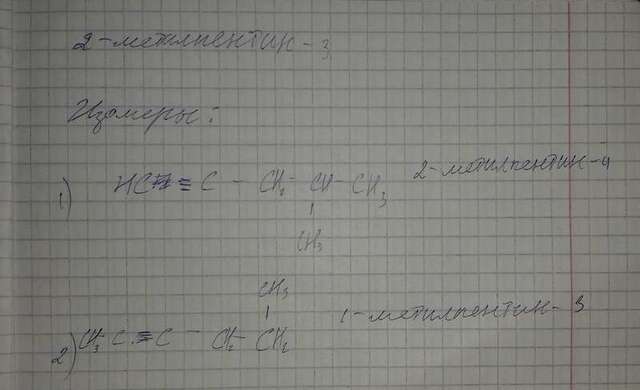 2-метилпентин-3
Изомеры:
1) HC≡C-CH2-CH-CH3 2-метилпентин-4
CH3
CH3
2) CH3C≡C-CH2-CH2 1-метилпентин-3